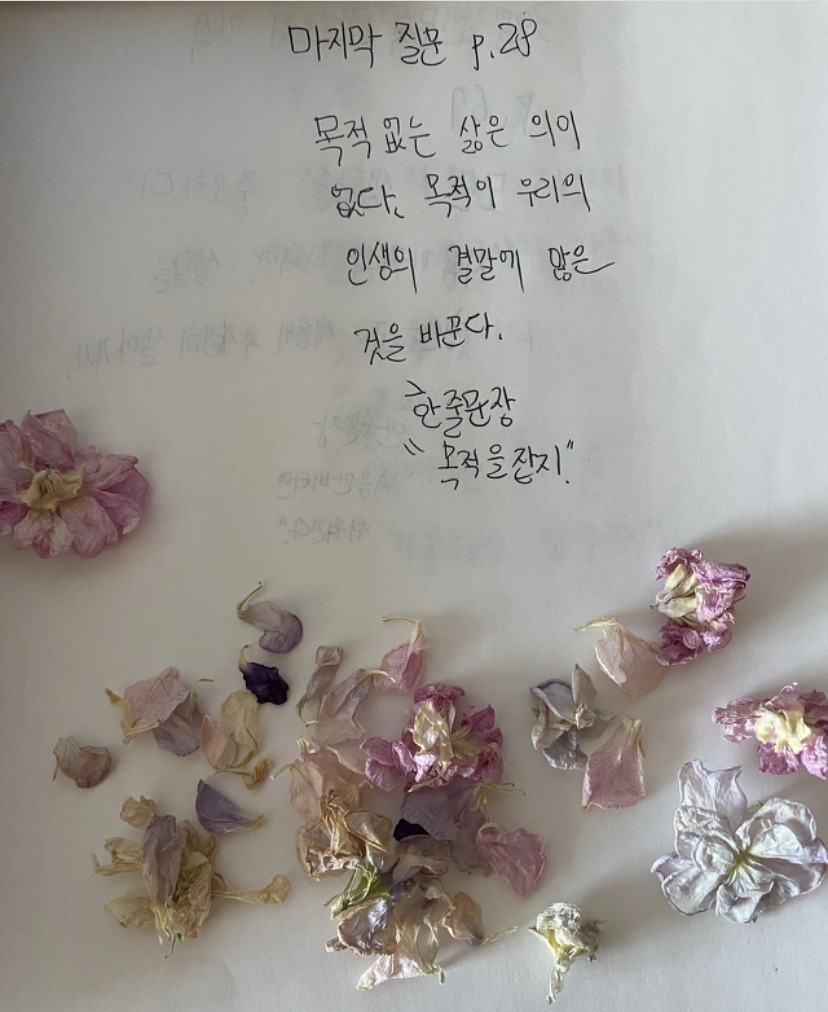 마지막 질문 p.28
목적 없는 삶은 의미
없다. 목적이 우리의
인생의 결말에 많은
것을 바꾼다.
한줄문장
"목적을 잡지."